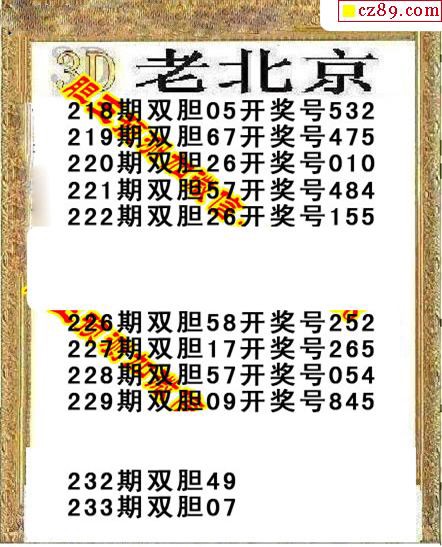 cz89.com
3D 老北京
218期双胆05开奖号532
219期双胆67开奖号475
220期双胆26开奖号010
221期双胆57开奖号484
222期双胆26开奖号155
226期双胆58开奖号252
227期双胆17开奖号265
228期双胆57开奖号054
229期双胆09开奖号845
232期双胆49
233期双胆07